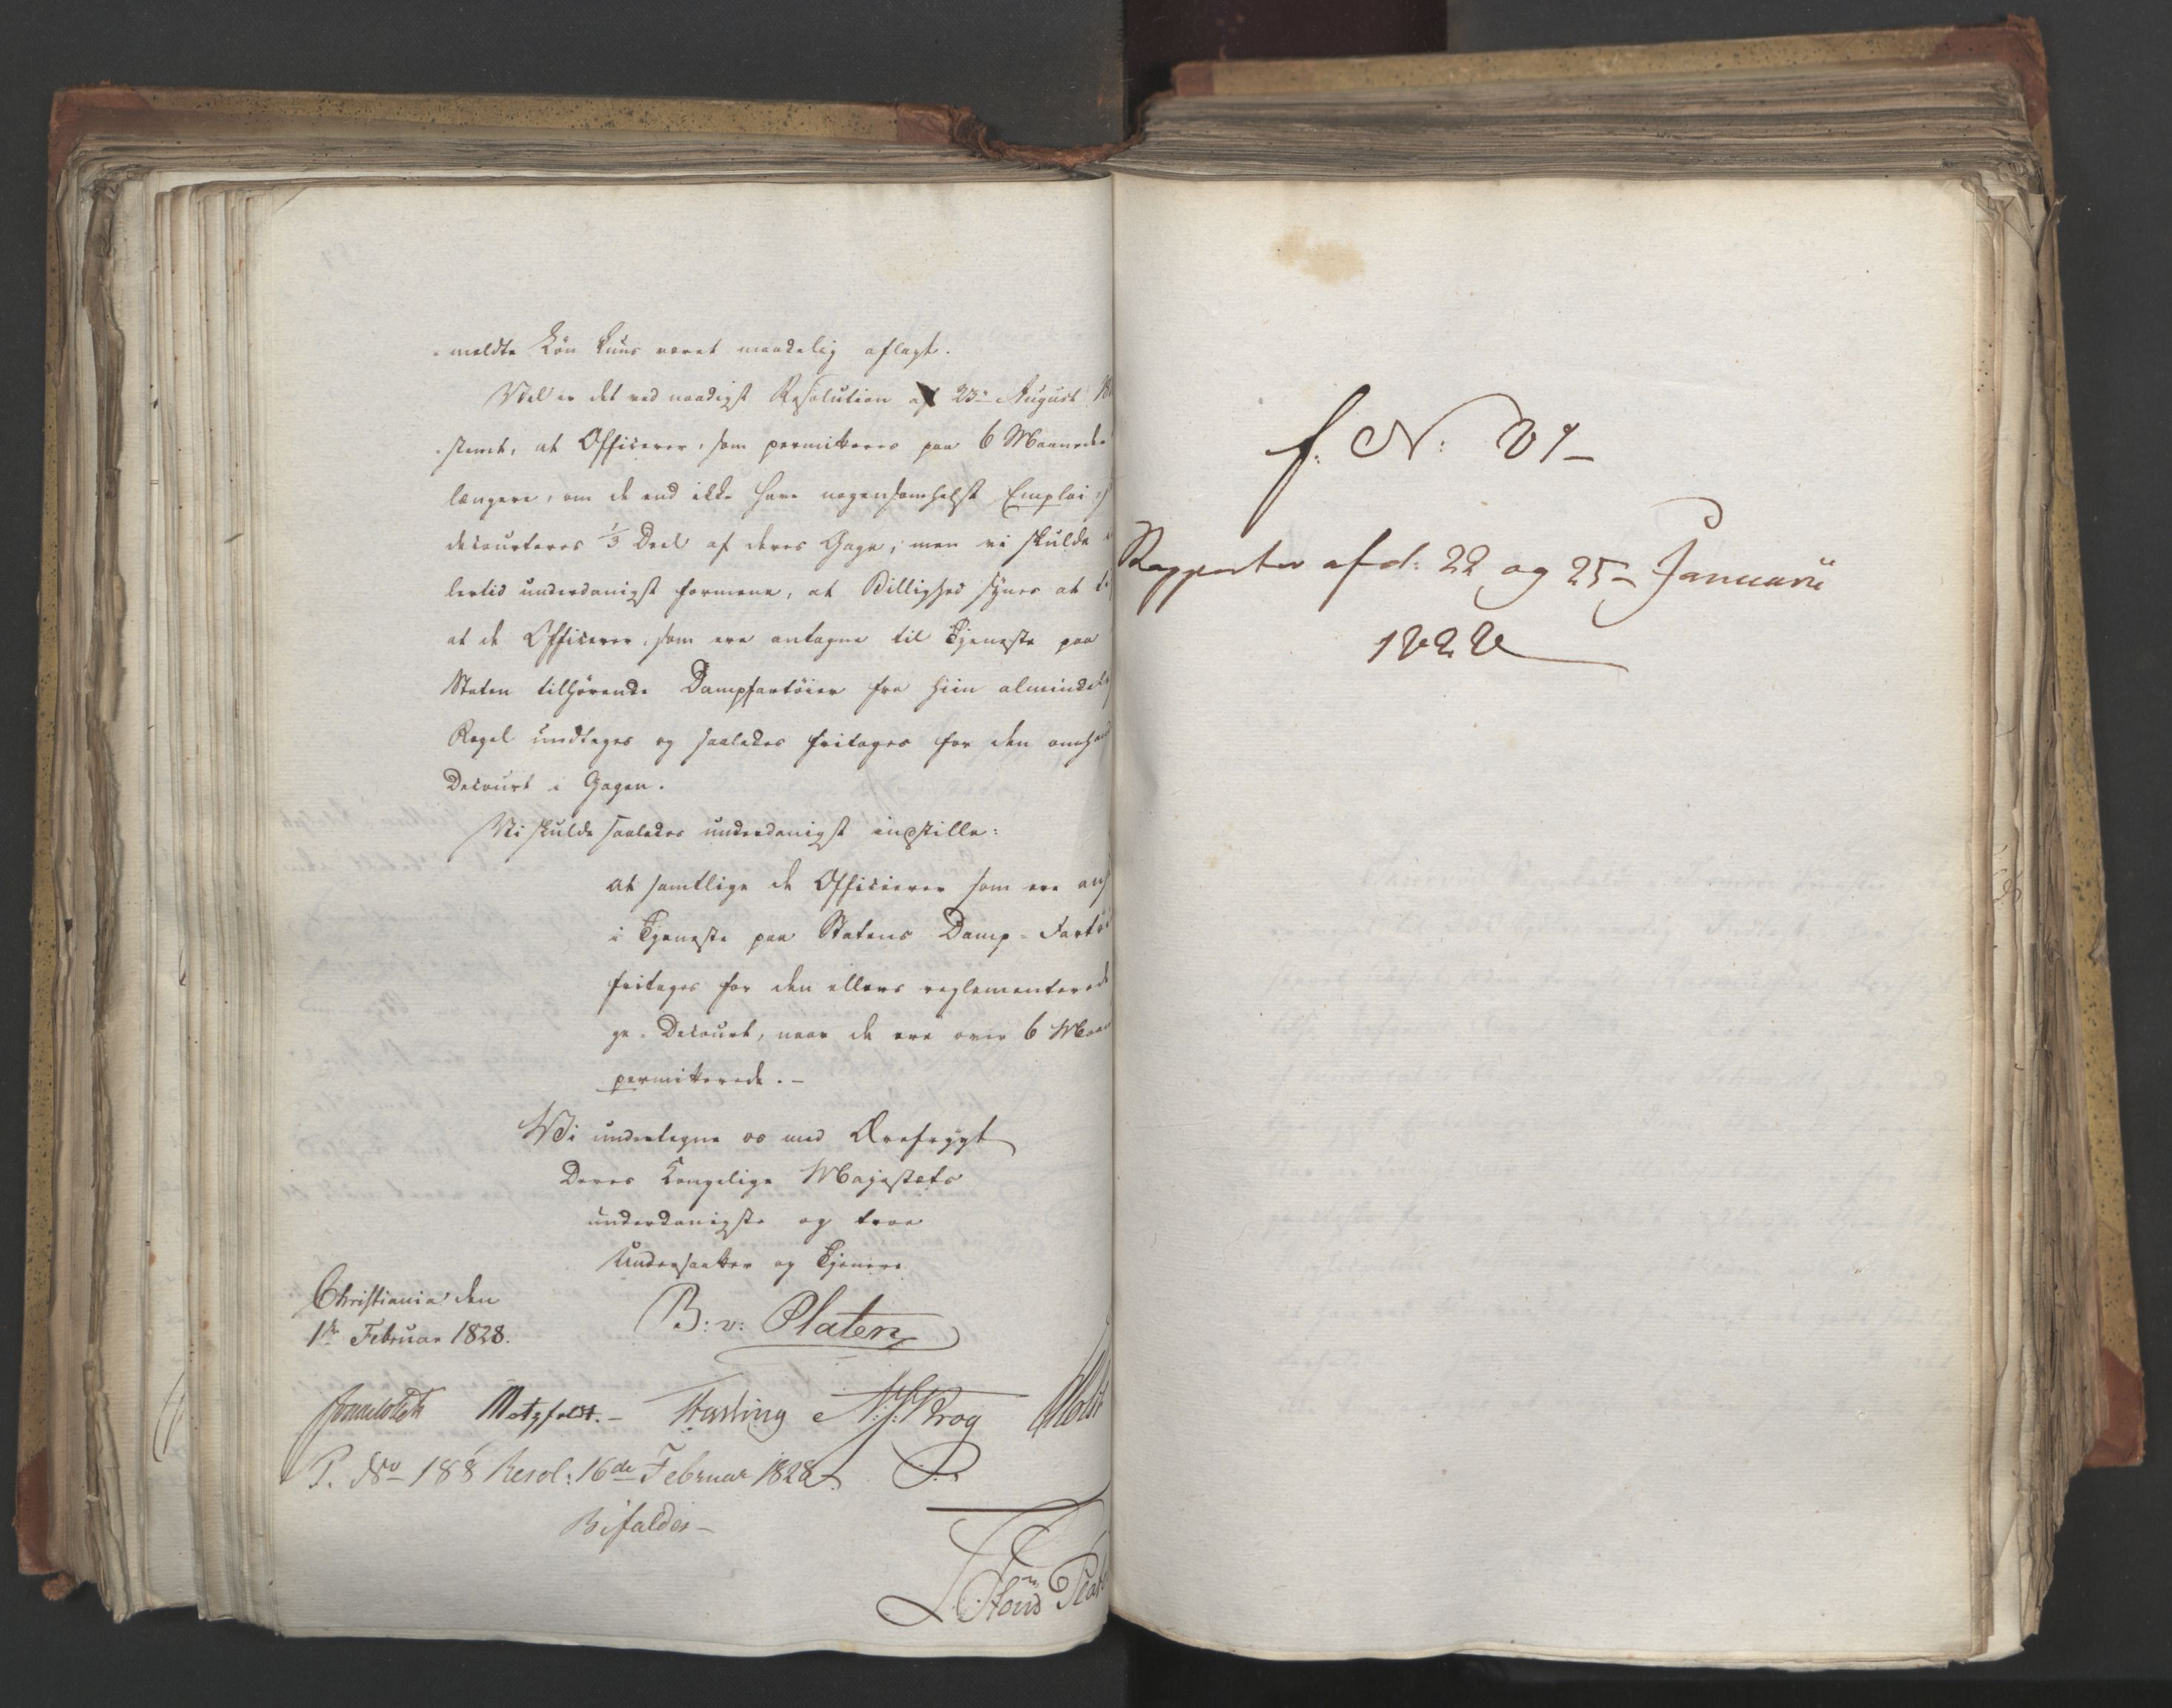 -meldte Lön kuns været maadelig aflagt.
Vel er det ved naadigst Resolution af 23de August 18
-stemt, at Officerer, som permitteres paa 6 Maaneder
længere, om de end ikke have nogensomhelst Emploi,
decourteres 1/3 Deel af deres Gage; men vi skulde
lertid underdanigst formene, at Billighed synes at
at de Officerer, som ere antagne til Tjeneste paa
Staten tilhörende Dampfartöier fra hiin almindel
Regel undtages og saaledes fritages for den omh
Decourt i Gagen.
Vi skulde saaledes underdanigst indstille:
at samtlige de Officierer som ere
i Tjeneste paa Statens Damp-Fartö
fritages for den ellers reglementerede
ge-Decourt, naar de ere over 6 Maan
permitterede.-
Vi undertegne os med Ærefrygt
Deres Kongelige Majestæts
underdanigste og troe
Undersaatter og Tjenere
Christiania den
1ste Februar 1828.
B: v: Platen
Sommerhielm Motzfeldt.- Fasting N. J. Krog Holst
P. No 188 Resol: 16de Februar 1828.
Bifaldes-
f. N: 81-
Rapporter af d: 22 og 25- Januarii
1828